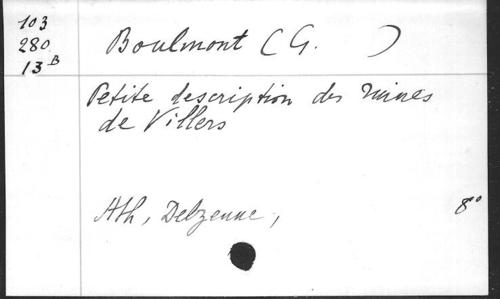 103
280
13 B
Boulmont (G. )
Petite description des ruines
de Villers
Ath, Delzenne,
8°